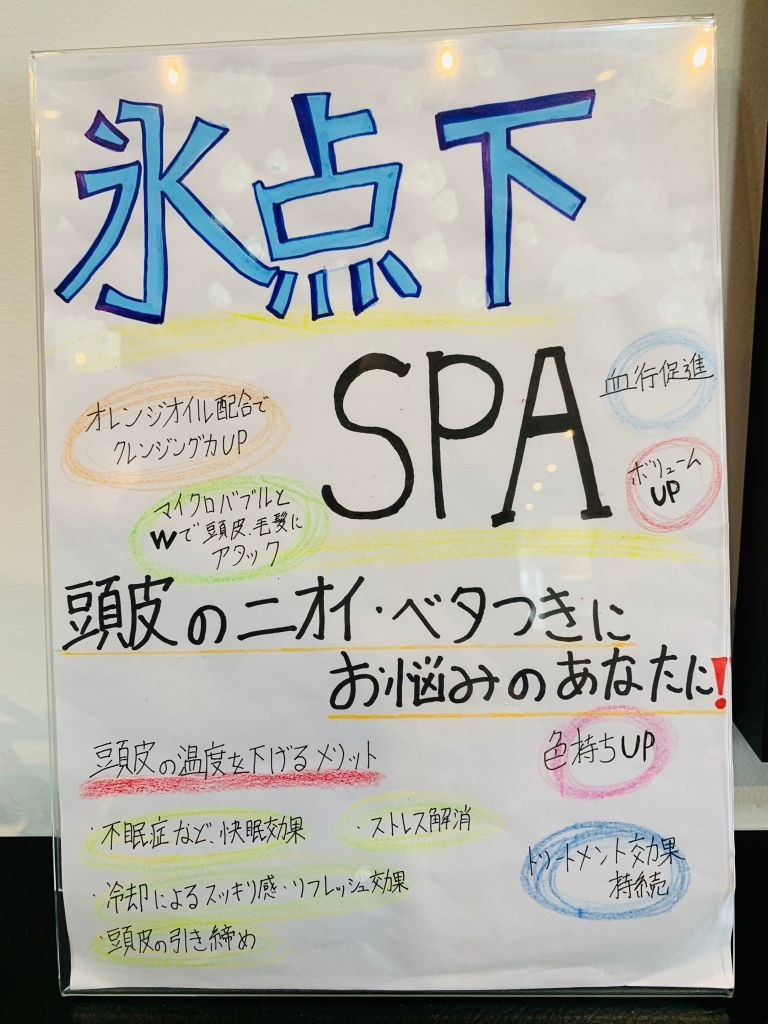 氷点下
SPA
血行促進
オレンジオイル配合で
クレンジング力UP
ボリューム
UP
マイクロバブルと
Wで頭皮、毛髪に
アタック
頭皮のニオイ・ベタつきに
お悩みのあなたに!
頭皮の温度を下げるメリット
色持ちUP
・不眠症など、快眠効果
・ストレス解消
トリートメント効果
持続
・冷却によるスッキリ感・リフレッシュ効果
・頭皮の引き締め